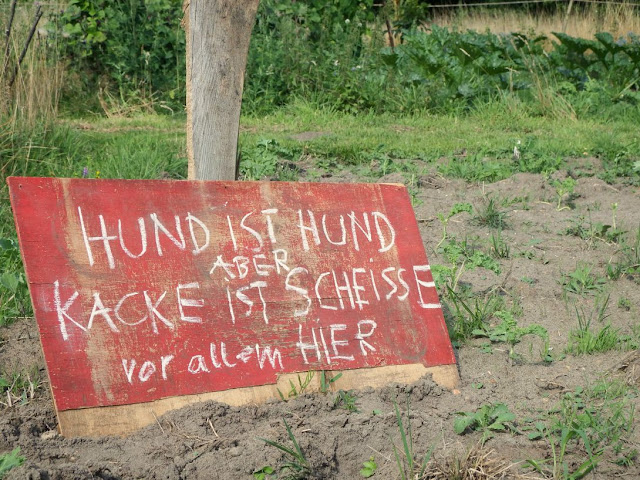 HUND IST HUND
ABER
KACKE IST SCHEISSE
vor allem HIER